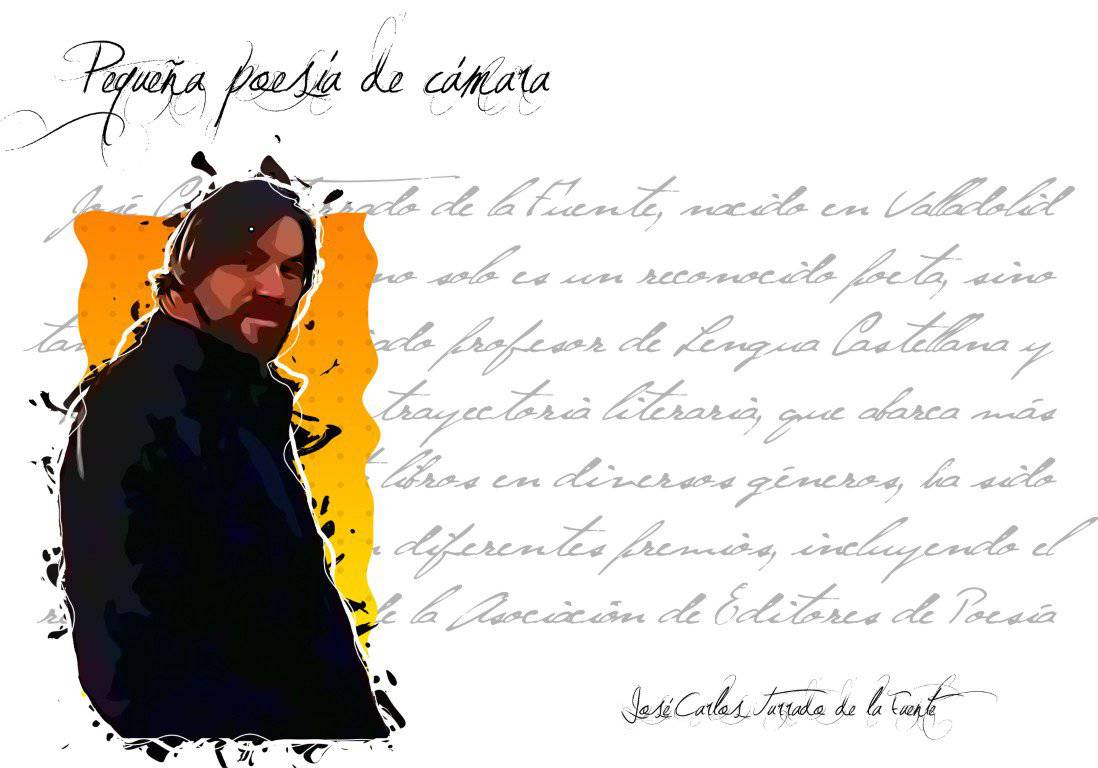 Pequeña poesía de cámara
José Turrado de la Fuente, nacido en Valladolid
no solo es un reconocido poeta, sino
profesor de Lengua Castellana y
trayectoria literaria, que abarca más
libros en diversos géneros, ha sido
diferentes premios, incluyendo el
de la Asociación de Editores de Poesía
José Carlos Turrado de la Fuente